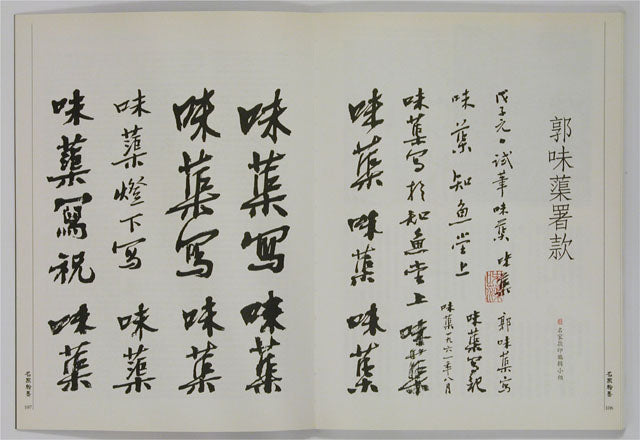 郭味蕖署款
名家款印編輯小組
戊子元日試筆味蕖
味蕖
郭味蕖寫
味蕖知魚堂上
味蕖寫記
味蕖寫於知魚堂上
味蕖
味蕖一九六一年八月
味蕖
味蕖
味蕖
106
味蕖寫
味蕖
味蕖寫
味蕖
味蕖燈下寫
味蕖
味蕖寫祝
味蕖
107